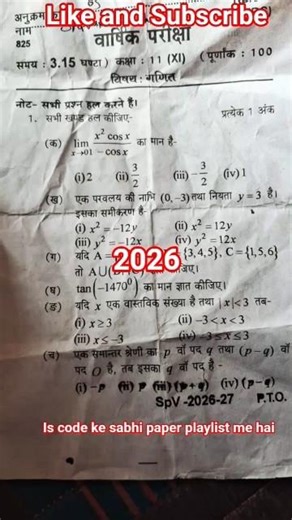 Like and Subscribe
अनुक्रम
नाम
825
वार्षिक परीक्षा
समय : 3.15 घण्टा) कक्षा : 11 (XI) (पूर्णांक : 100
विषय : गणित
नोट- सभी प्रश्न हल करने हैं।
1. सभी खण्ड हल कीजिए- प्रत्येक 1 अंक
(क) lim x→01 x² cos x / 1 - cos x का मान है-
(i) 2 (ii) 3/2 (iii) -3/2 (iv) 1
(ख) एक परवलय की नाभि (0, -3) तथा नियता y = 3 है।
इसका समीकरण है-
(i) x² = -12y (ii) x² = 12y
(iii) y² = -12x (iv) y² = 12x
(ग) यदि A = {3,4,5}, C = {1,5,6}
2026
तो AU
(घ) tan(-1470⁰) का मान ज्ञात कीजिए।
(ङ) यदि x एक वास्तविक संख्या है तथा |x| < 3 तब-
(i) x ≥ 3 (ii) -3 < x < 3
(iii) x ≤ -3 (iv) -3 ≤ x ≤ 3
(च) एक समान्तर श्रेणी का p वाँ पद q तथा (p - q) वाँ
पद O है, तब इसका q वाँ पद है-
(i) -p (ii) p (iii) (p + q) (iv) (p - q)
SpV -2026-27 P.T.O.
Is code ke sabhi paper playlist me hai